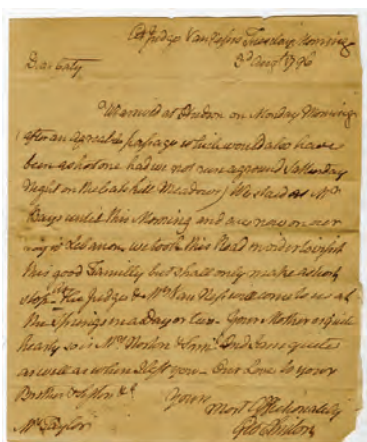 At Judge Van Ness's Tuesday Morning
3d Augt 1796
Dear Caty
We arrived at Hudson on Monday Morning
after an agreeable passage which would also have
been a short one had we not run aground Satturday
Night on the Catskill Meadows) We staid at Mrs
Hays untill this Morning and are now on our
way to Lebanon we took this Road in order to visit
this good Familly but shall only make a short
stop The Judge & Mrs Van Ness will come to us at
the Springs in a Day or two. Your Mother is quite
hearty so is Mrs Norton & And I am quite
as well as when I left you. Our Love to your
Brother & Sister &c
Yours
most Affectionately
Geo Clinton
Mrs Taylor